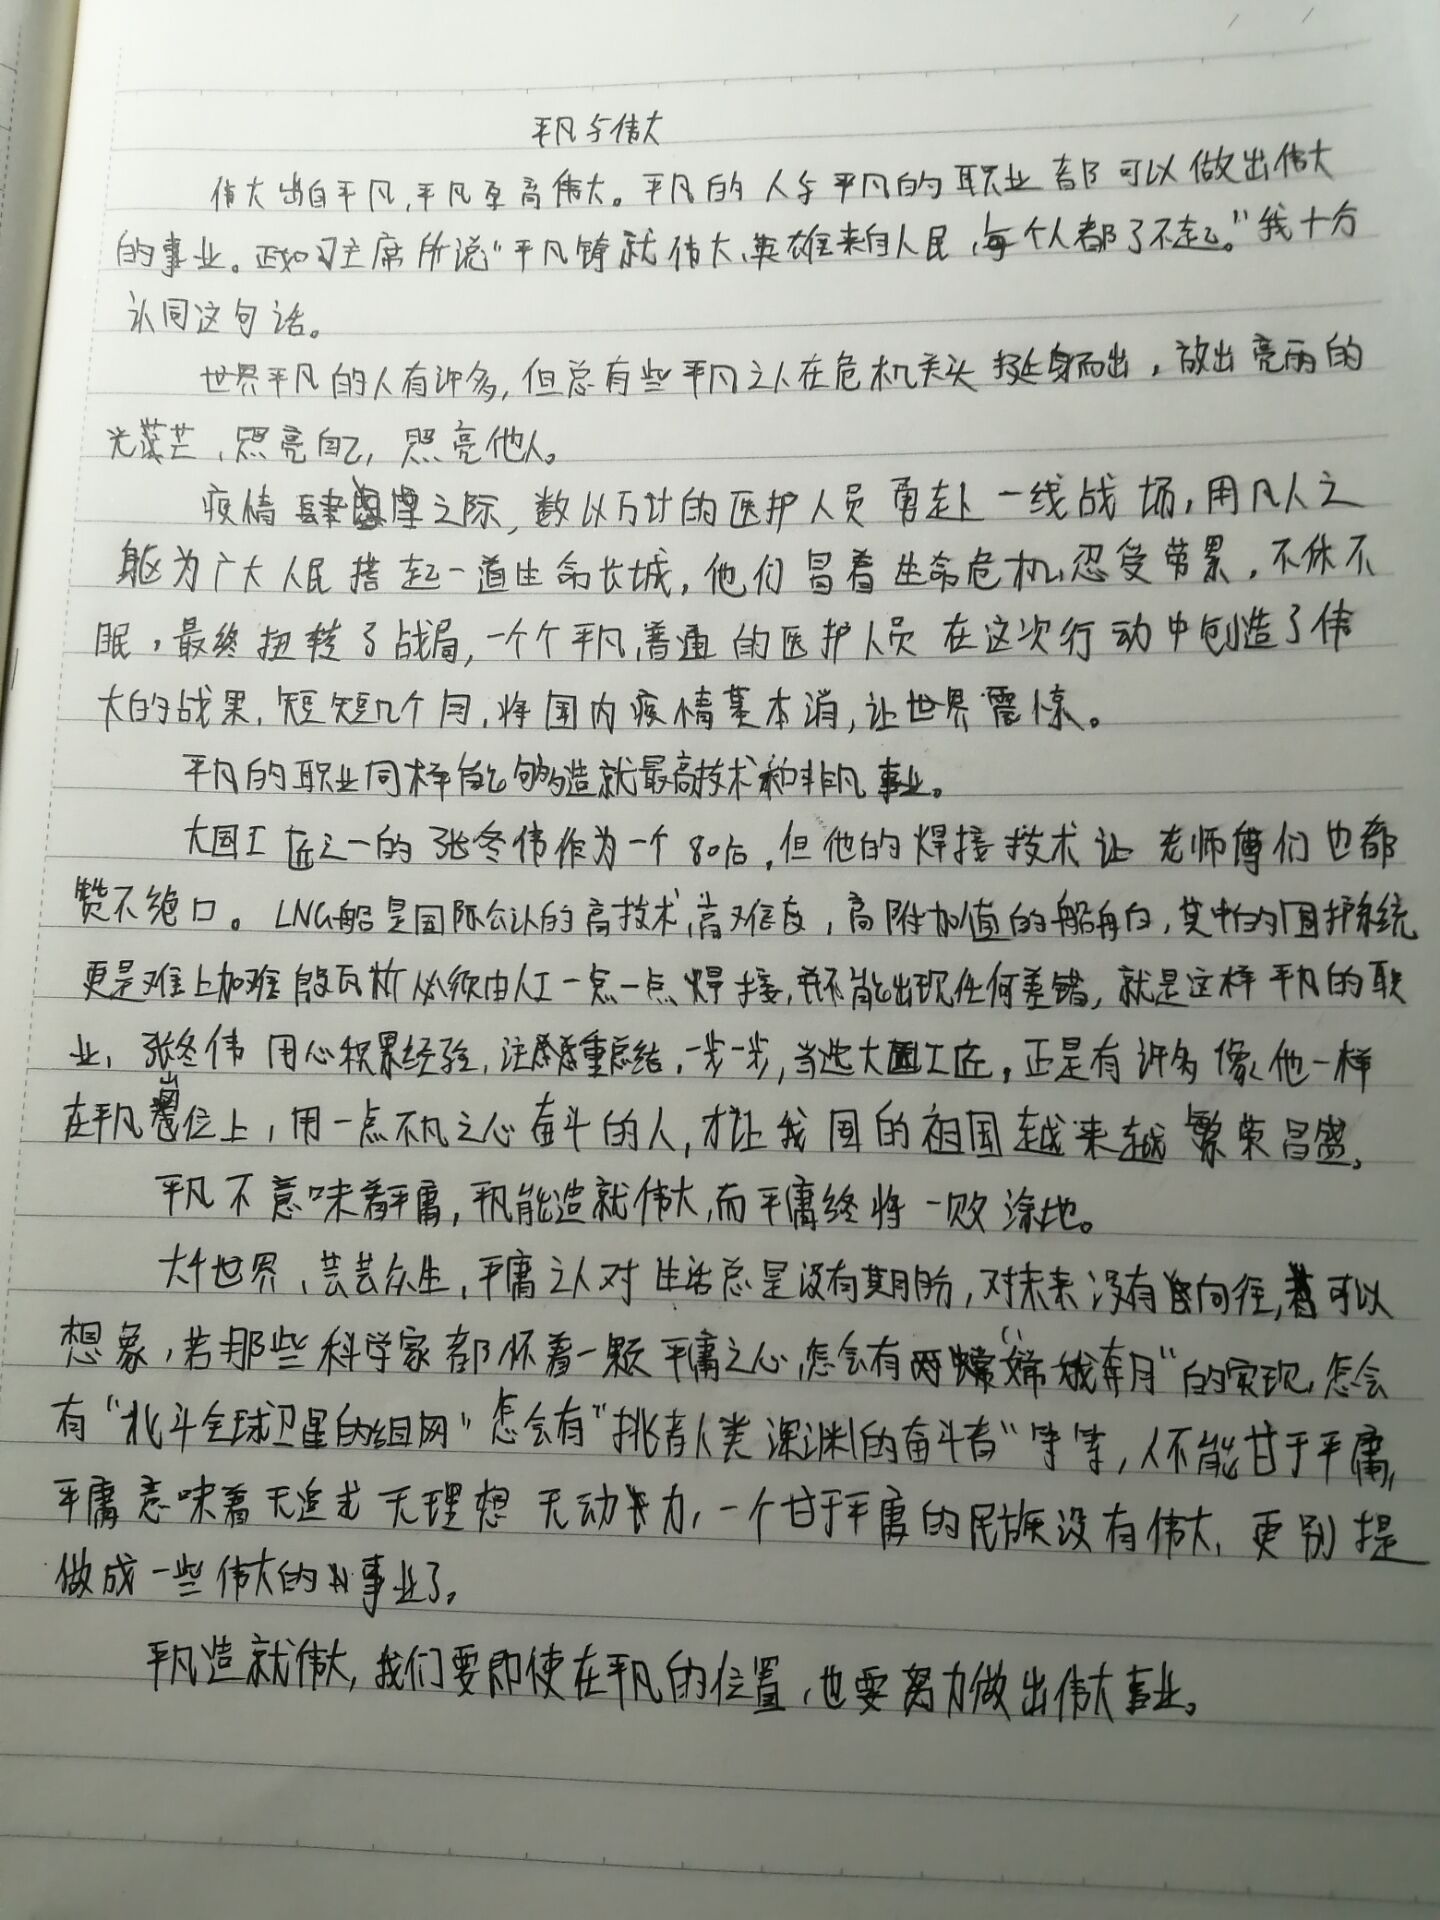 平凡与伟大
伟大出自平凡,平凡至高伟大。平凡的人与平凡的职业都可以做出伟大
的事业。正如习主席所说"平凡铸就伟大,英雄来自人民,每个人都了不起。"我十分
认同这句话。
世界平凡的人有许多,但总有些平凡之人在危机关头挺身而出,放出亮丽的
光芒,照亮自己,照亮他人。
疫情肆虐之际,数以万计的医护人员勇赴一线战场,用凡人之
躯为广大人民搭起一道生命长城,他们冒着生命危机,忍受劳累,不休不
眠,最终扭转了战局,一个个平凡,普通的医护人员在这次行动中创造了伟
大的战果,短短几个月,将国内疫情基本消,让世界震惊。
平凡的职业同样能够造就最高技术和非凡事业。
大国工匠之一的张冬伟作为一个80后,但他的焊接技术让老师傅们也都
赞不绝口。LNG船是国际公认的高技术,高难度,高附加值的船舶,其中的围护系统
更是难上加难殷瓦板必须由人工一点一点焊接,并不能出现任何差错,就是这样平凡的职
业,张冬伟用心积累经验,注重总结,一步一步,当选大国工匠,正是有许多像他一样
在平凡岗位上,用一点不凡之心奋斗的人,才让我国的祖国越来越繁荣昌盛,
平凡不意味着平庸,平凡能造就伟大,而平庸终将一败涂地。
大千世界,芸芸众生,平庸之人对生活总是没有期盼,对未来没有向往,可以
想象,若那些科学家都怀着一颗平庸之心,怎会有"嫦娥奔月"的实现,怎会
有"北斗全球卫星的组网"怎会有"挑者人类深渊的奋斗者"等等,人不能甘于平庸,
平庸意味着无追求无理想无动力,一个甘于平庸的民族没有伟大,更别提
做成一些伟大的事业了。
平凡造就伟大,我们要即使在平凡的位置,也要努力做出伟大事业。